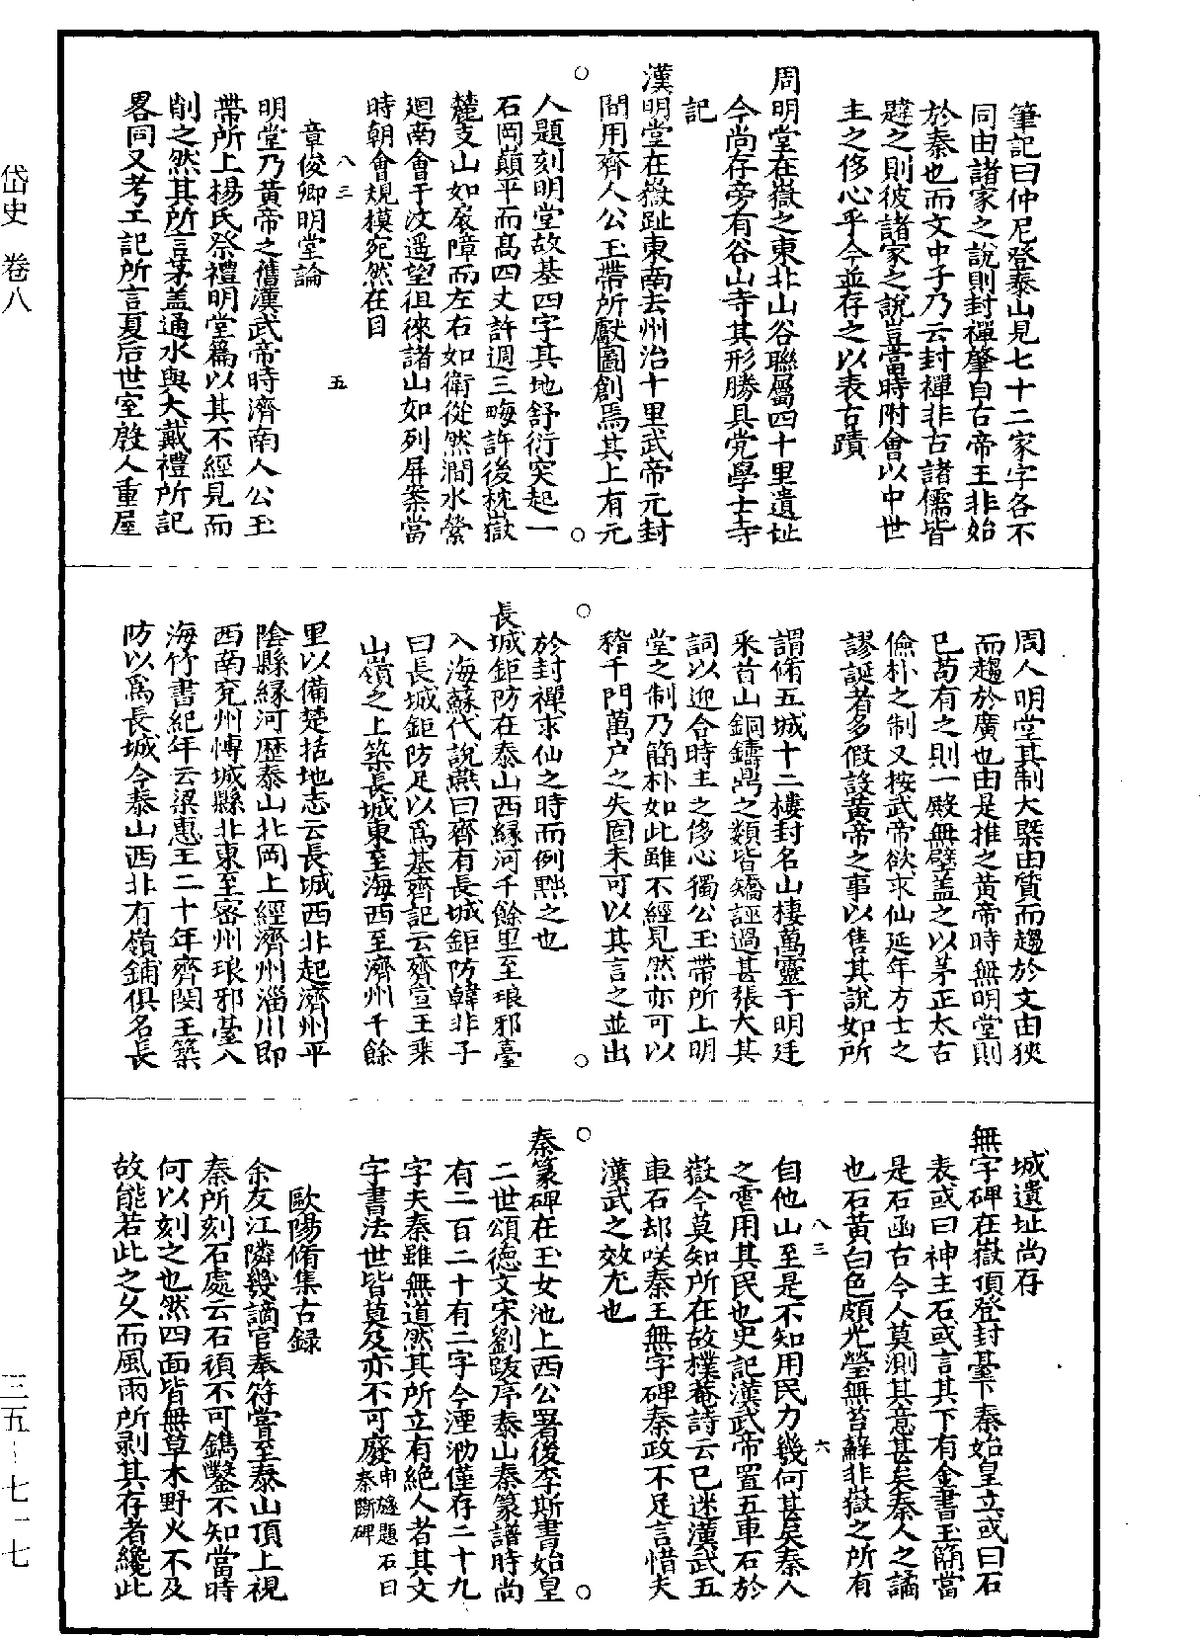 筆記曰仲尼登泰山見七十二家字各不
同由諸家之說則封禪肇自古帝王非始
於秦也而文中子乃云封禪非古諸儒皆
闢之則彼諸家之說豈當時附會以中世
主之侈心乎今並存之以表古蹟
周明堂在嶽之東北山谷聯屬四十里遺址
今尚存旁有谷山寺其形勝具党學士寺
記
漢明堂在嶽趾東南去州治十里武帝元封
間用齊人公玉帶所獻圖創焉其上有元
人題刻明堂故基四字其地舒衍突起一
石岡巔平而高四丈許週三畮許後枕嶽
麓支山如扆障而左右如衛從然澗水縈
迴南會于汶遥望徂徠諸山如列屏案當
時朝會規模宛然在目
八三
五
章俊卿明堂論
明堂乃黄帝之舊漢武帝時濟南人公玉
帶所上楊氏祭禮明堂篇以其不經見而
削之然其所言茅盖通水與大戴禮所記
畧同又考工記所言夏后世室殷人重屋
周人明堂其制大槩由質而趨於文由狹
而趨於廣也由是推之黄帝時無明堂則
已苟有之則一殿無壁盖之以茅正太古
儉朴之制又按武帝欲求仙延年方士之
謬誕者多假設黄帝之事以售其說如所
謂脩五城十二樓封名山棲萬靈于明廷
采首山銅鑄鼎之類皆矯誣過甚張大其
詞以迎合時主之侈心獨公玉帶所上明
堂之制乃簡朴如此雖不經見然亦可以
稽千門萬户之失固未可以其言之並出
於封禪求仙之時而例黜之也
長城鉅防在泰山西緣河千餘里至琅邪臺
入海蘇代說燕曰齊有長城鉅防韓非子
曰長城鉅防足以爲基齊記云齊宣王乗
山嶺之上築長城東至海西至濟州千餘
里以備楚括地志云長城西北起濟州平
陰縣緣河歷泰山北岡上經濟州淄川即
西南兖州博城縣北東至密州琅邪臺入
海竹書紀年云梁惠王二十年齊閔王築
防以爲長城今泰山西北有嶺鋪俱名長
城遺址尚存
無字碑在嶽頂登封臺下秦始皇立或曰石
表或曰神主石或言其下有金書玉簡當
是石函古今人莫測其意甚矣秦人之譎
也石黄白色頗光瑩無苔蘚非嶽之所有
自他山至是不知用民力幾何甚矣秦人
之雷用其民也史記漢武帝置五車石於
嶽今莫知所在故樸菴詩云已迷漢武五
車石却咲秦王無字碑秦政不足言惜夫
漢武之效尤也
八三
六
秦篆碑在玉女池上西公署後李斯書始皇
二世頌德文宋劉跂序泰山秦篆譜時尚
有二百二十有二字今湮泐僅存二十九
字夫秦雖無道然其所立有絕人者其文
字書法世皆莫及亦不可廢申㮋題石曰
秦斷碑
歐陽脩集古録
余友江隣幾謫官奉符嘗至泰山頂上視
秦所刻石處云石頑不可鐫鑿不知當時
何以刻之也然四面皆無草木野火不及
故能若此之久而風雨所剥其存者纔此
岱史 卷八
三五—七一七